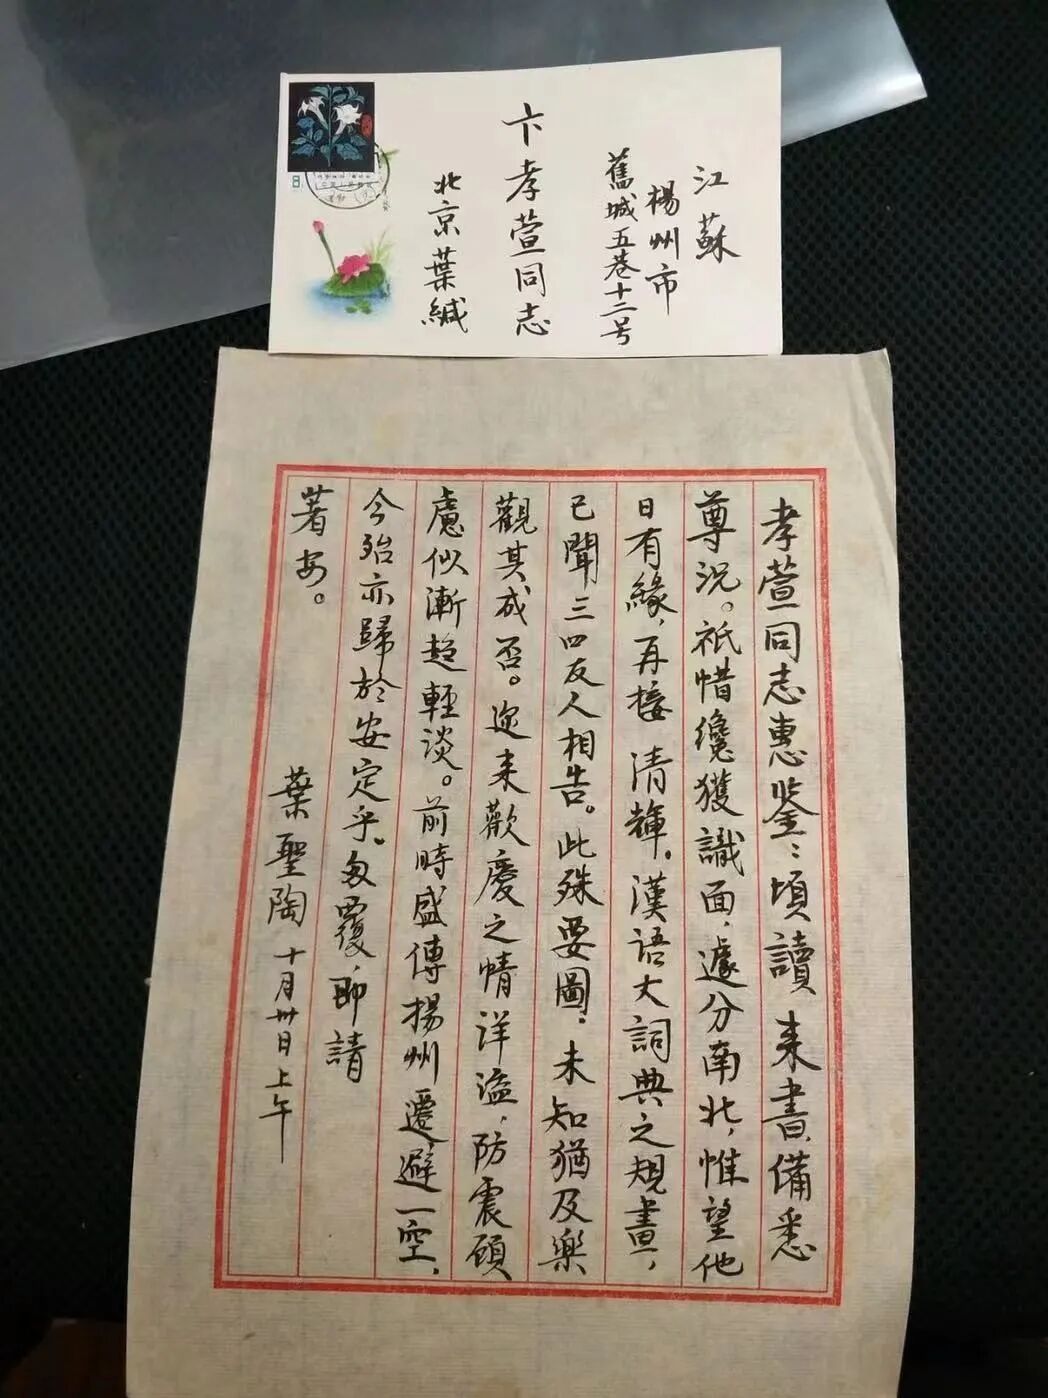 江蘇
楊州市
舊城五巷十二号
卞孝萱同志
北京葉緘
8
孝萱同志惠鉴：頃讀 来書，備悉
尊況。祇惜纔獲識面，遽分南北，惟望他
日有緣，再接 清輝。漢语大詞典之規畫，
已聞三四友人相告。此殊要圖，未知猶及樂
觀其成否。迩来歡慶之情洋溢，防震顾
慮似漸趋輕淡。前時盛傳揚州遷避一空，
今殆亦歸於安定乎。匆覆，即請
著安。
葉聖陶 十月卅日上午